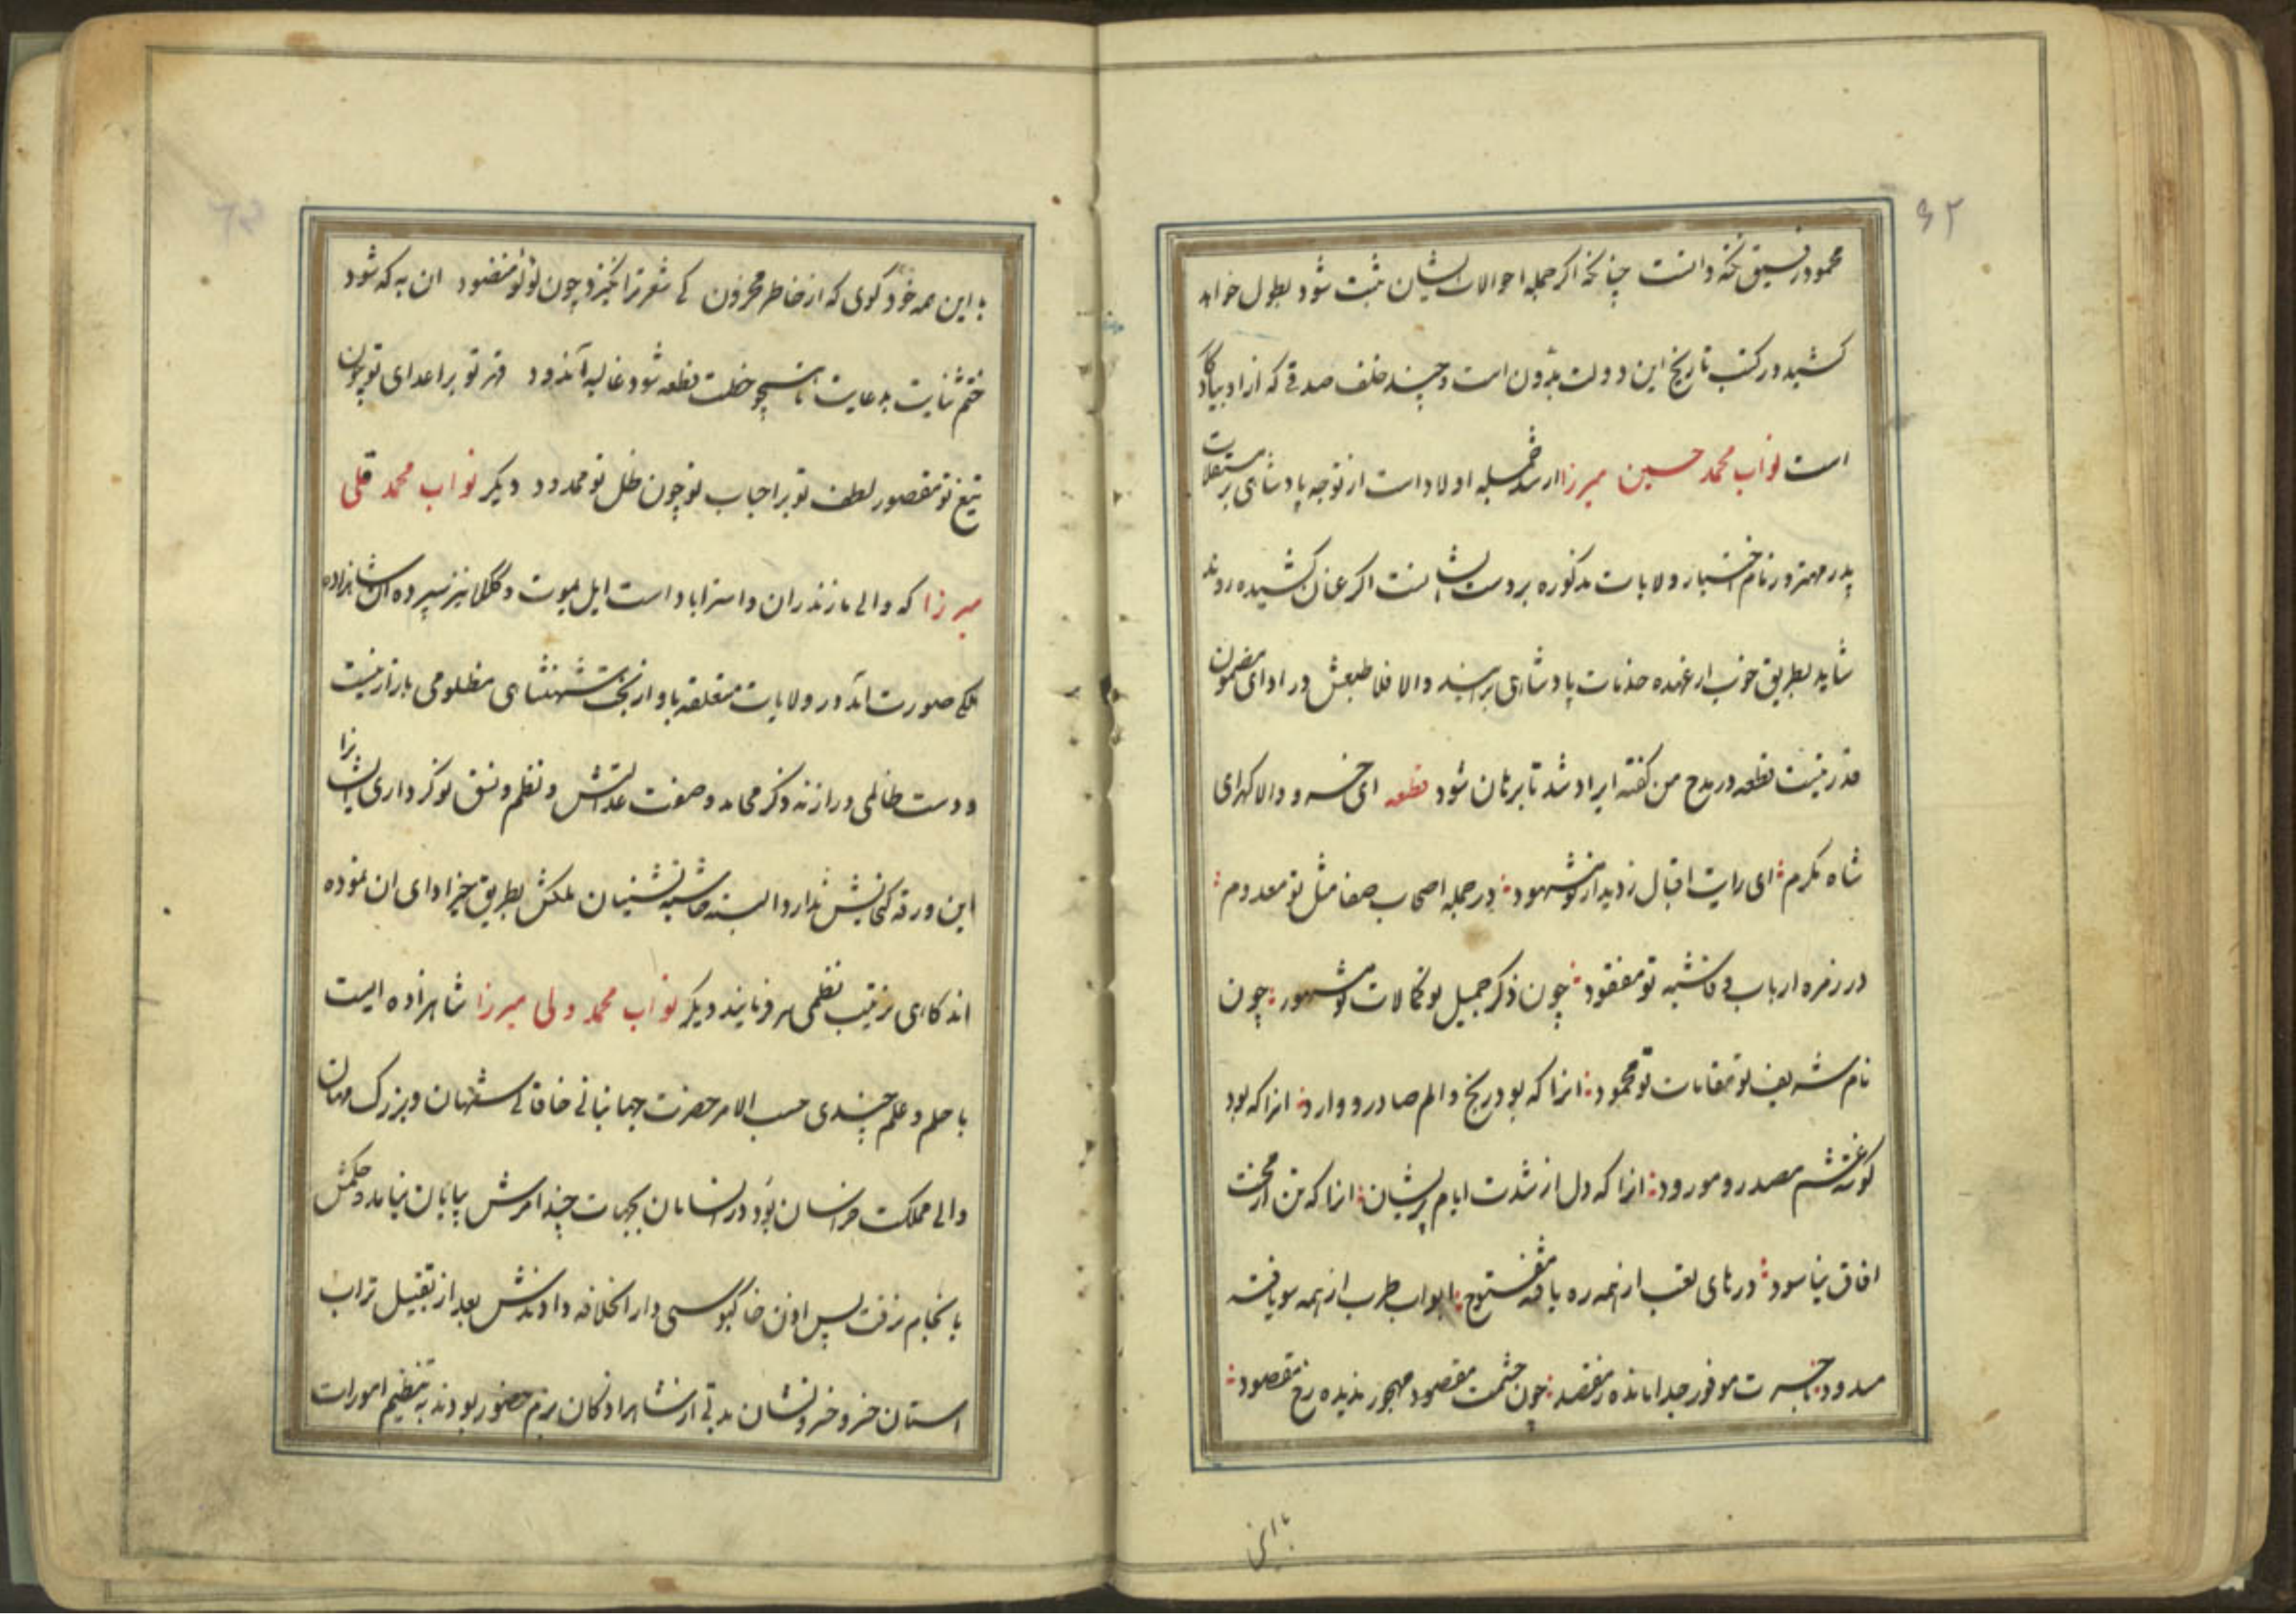 ۶۲
محمود رفیق نکته دانست چنانکه اکر جمله احوالات ایشان ثبت شود بطول خواهد
کشید در کتب تاریخ این دولت مدون است و چند خلف صدق که از او بیادکار
است نواب محمد حسین میرزا ارشد جمله اولاد است از توجه پادشاهی بر مستقلات
پدر مهتر و زمام اختیار ولایات مذکوره بر دست ایشانست اکر عنان کشیده روند
شاید بطریق خوب از عهده خدمات پادشاهی برایند والا فلا طبعش در ادای مضمون
قدر نیست قطعه در مدح من کفته ایراد شد تا برهان شود قطعه ای خسرو والا کهر ای
شاه مکرم ای رایت اقبال ز دیدار تو مشهود در جمله اصحاب صفا مثل تو معدوم
در زمره ارباب وفا شبه تو مفقود چون ذکر جمیل تو کمالات تو مشهور چون
نام شریف تو مقامات تو محمود انرا که بود رنج و الم صادر و وارد انرا که بود
کونه غم مصدر و مورود انرا که دل از شدت ایام پریشان انرا که تن از محنت
افاق نیاسود درهای تعب از همه ره یافته مفتوح ابواب طرب از همه سو یافته
مسدود با حسرت موفور جدا مانده ز مقصد چون حشمت مقصود مهجور ندیده رخ مقصود
با این
با این همه خود کوی که از خاطر محزون کی شعر تر انکیزد چون لؤلؤ منضود ان به که شود
ختم ثنایت بدعایت تا نسخه خطت قطعه شود غالیه آندود قهر تو بر اعدای تو چون
تیغ تو مقصور لطف تو بر احباب تو چون ظل تو ممدود دیکر نواب محمد قلی
میرزا که والی مازندران و استراباد است ایل یموت و کوکلان نیز سپرده آن شاهزاده
ملکی صورت آمد در ولایات متعلقه باو از بخت شهنشاهی مظلومی بازار نیست
و دست ظالمی دراز نه ذکر محامد و صفوت عدالتش و نظم و نسق نوکرداری ایشانرا
این ورقه کنجایش ندارد البته حاشیه نشینان ملکش بطریق خیر ادای ان نموده
اندکاهی ترتیب نظمی هم فرمایند دیکر نواب محمد ولی میرزا شاهزاده ایست
با حلم و علم چندی حسب الامر حضرت جهانبانی خاقانی استشهان و بزرک مهان
والی مملکت خراسان بود در انسامان بجهات چند امرش بپایان نیامد و حکمش
بانجام نرفت پس اذن خاکبوسی دار الخلافه دادندش بعد از تقبیل تراب
استان خسرو خسرو نشان مدتی از شاهزادکان بزم حضور بودند به تنظیم امورات